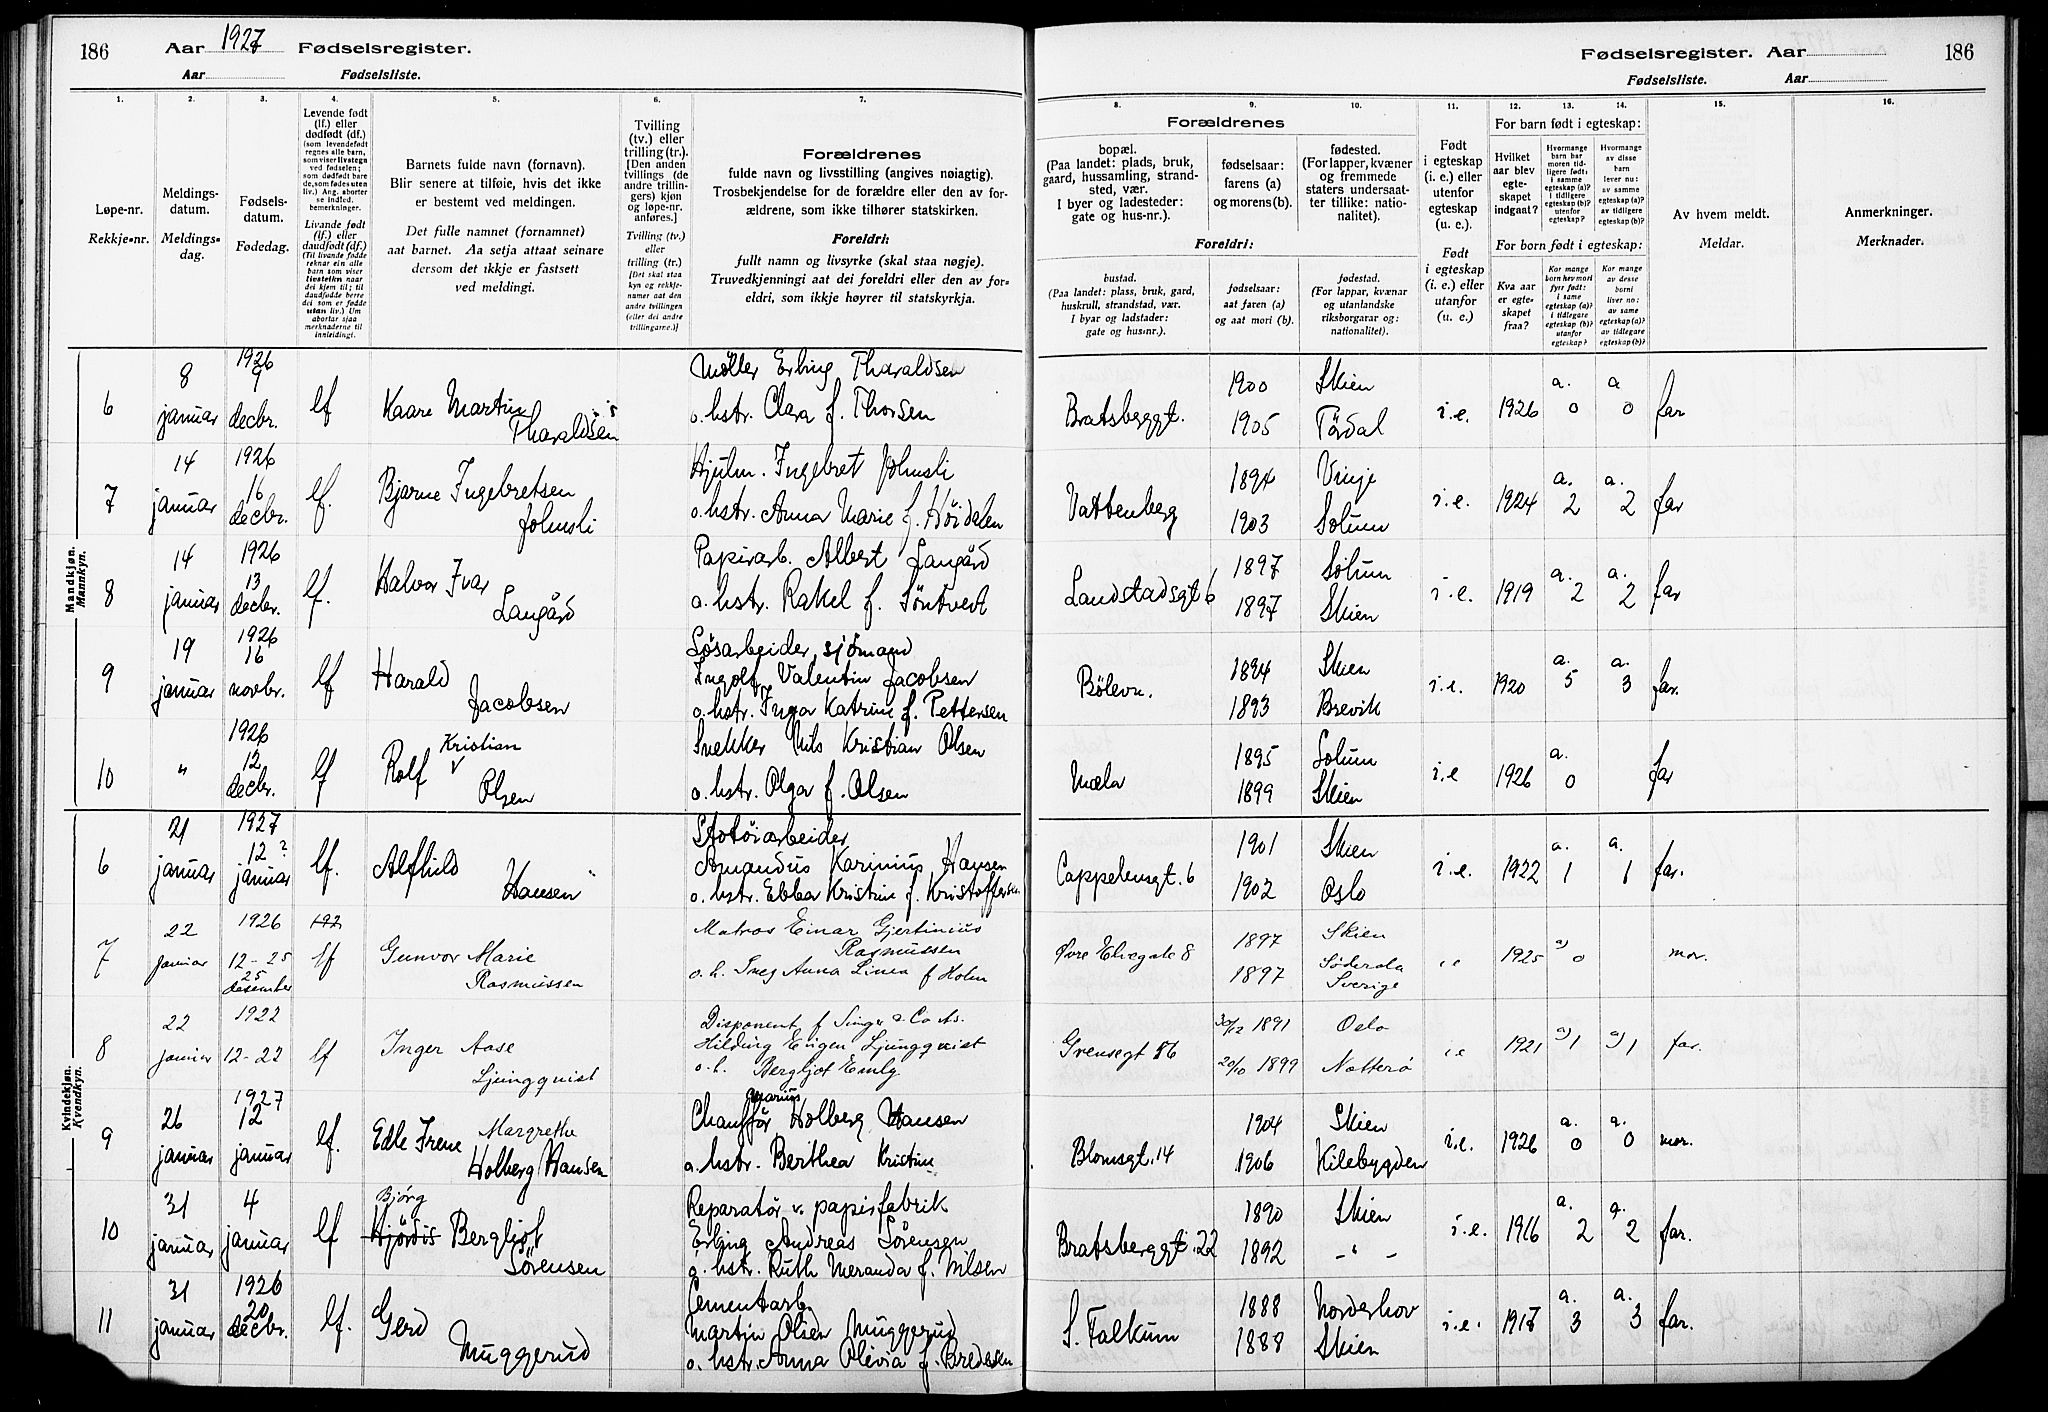 186 Aar 1927 Fødselsregister.
Aar Fødselsliste.
Fødselsregister. Aar 186
Fødselsliste. Aar
1. 2. 3. 4. 5. 6. 7. 8. 9. 10. 11. 12. 13. 14. 15. 16.
Løpe-nr.
Rekkje-nr.
Meldings-
datum.
Meldings-
dag.
Fødsels-
datum.
Fødedag.
Levende født
(lf.) eller
dødfødt (df.)
(som levendefødt
regnes alle barn,
som viser livstegn
ved fødselen;
som dødfødt bare
de, som fødes uten
liv.) Ang. aborter
se indled.
bemerkninger.
Livande fødd
(lf.) eller
daudfødd (df.)
(Til livande fødde
reknar ein alle
barn som viser
livsteikn naar
dei kjem til; til
daudfødde berre
dei som er fødde
utan liv.) Um
abortar sjaa
merknaderne til
innleidingi.
Barnets fulde navn (fornavn).
Blir senere at tilføie, hvis det ikke
er bestemt ved meldingen.
Det fulle namnet (fornamnet)
aat barnet. Aa setja attaat seinare
dersom det ikkje er fastsett
ved meldingi.
Tvilling
(tv.) eller
trilling (tr.).
[Den anden
tvillings (de
andre trillin-
gers) kjøn
og løpe-nr.
anføres.]
Tvilling (tv.)
eller
trilling (tr.)
[Det skal staa
kyn og rekkje-
numer aat den
andre tvillingen
(eller dei andre
trillingarne.)]
Forældrenes
fulde navn og livsstilling (angives nøiagtig).
Trosbekjendelse for de forældre eller den av for-
ældrene, som ikke tilhører statskirken.
Foreldri:
fullt namn og livsyrke (skal staa nøgje).
Truvedkjenningi aat dei foreldri eller den av for-
eldri, som ikkje høyrer til statskyrkja.
Forældrenes
bopæl.
(Paa landet: plads, bruk,
gaard, hussamling, strand-
sted, vær.
I byer og ladesteder:
gate og hus-nr.).
fødselsaar:
farens (a)
og morens (b).
fødested.
(For lapper, kvæner
og fremmede
staters undersaat-
ter tillike: natio-
nalitet).
Foreldri:
bustad.
(Paa landet: plass, bruk, gard,
huskrull, strandstad, vær.
I byar og ladstader:
gate og husnr.).
fødselsaar:
aat faren (a)
og aat mori (b).
fødestad.
(For lappar, kvænar
og utanlandske
riksborgarar og:
nationalitet).
Født
i egteskap
(i. e.) eller
utenfor
egteskap
(u. e.).
Født
i egteskap
(i. e.) eller
utanfor
(u. e.)
For barn født i egteskap:
Hvilket
aar blev
egte-
skapet
indgaat?
Hvormange
barn har
moren tid-
ligere født:
i samme
egteskap (a)?
i tidligere
egteskap (b)?
utenfor
egteskap?
Hvormange
av disse
barn
lever nu:
av samme
egteskap (a)?
av tidligere
egteskap (b)?
For born født i egteskap:
Kva aar
er egte-
skapet
fraa?
Kor mange
born hev mori
fyrr født:
i same
egteskap (a)?
i tidlegare
egteskap (b)?
utanfor
egteskap?
Kor mange
av desse
borni
liver no:
av same
egteskap (a)?
av tidlegare
egteskap (b)?
Av hvem meldt.
Meldar.
Anmerkninger.
Merknader.
Mandkjøn.
Mannkyn.
6 8 januar 1926 9 decbr. lf Kaare Martin Tharaldsen
Møller Erling Tharaldsen
o. hstr. Clara f. Thorsen
Bratsberggt. 1900 1905 Skien Tördal i.e. 1926 a. 0 a 0 far
7 14 januar 1926 16 decbr. lf. Bjarne Ingebretsen Johnsli
Hjulm. Ingebret Johnsli
o. hstr. Anna Marie f. Höidalen
Vattenberg 1894 1903 Vinje Solum i.e. 1924 a. 2 a. 2 far
8 14 januar 1926 13 decbr. lf. Halvor Ivar Langård
Papirarb. Albert Langård
o. hstr. Rakel f. Söntvedt
Landstadsgt 6 1897 1897 Solum Skien i.e. 1919 a. 2 a. 2 far
9 19 januar 1926 16 novbr. lf Harald Jacobsen
Løsarbeider, sjömand
Ingolf Valentin Jacobsen
o. hstr. Inga Katrine f. Pettersen
Bölevn. 1894 1893 Skien Brevik i.e. 1920 a. 5 a. 3 far.
10 " 1926 12 decbr. lf Rolf Kristian Olsen
Snekker Nils Kristian Olsen
o. hstr. Olga f. Olsen
Mæla 1895 1899 Solum Skien i.e 1926 a. 0 far
Kvindekjøn.
Kvendkyn.
6 21 januar 1927 12 ? januar lf. Alfhild Hansen
Amandus Karinius Hansen
o. hstr. Ebba Kristine f. Kristoffersen
Cappelensgt. 6 1901 1902 Skien Oslo i.e. 1922 a. 1 a. 1 far.
7 22 januar 1926 12-25 25 desember 192 lf Gunvor Marie Rasmussen
Matros Einar Gjertinius
Rasmussen
o. h. Anna Linea f Holm
Øvre Elvegate 8 1897 1897 Skien Söderala Sverige i e 1925 a) 0 mor.
8 22 januar 1922 12-22 lf Inger Aase Ljungqvist
Disponent f Singer & Co As.
Hilding Eugen Ljungqvist
o. h. Bergljot Emly
Grensegt 86 30/12 1891 20/10 1899 Oslo Nøtterø i e 1921 a) 1 a) 1 far.
9 26 januar 1927 12 januar lf. Edle Irene Margrethe Holberg Hansen
Chauffør Holberg Hansen
o. hstr. Berthea Kristine
Blomsgt. 14 1904 1906 Skien Kilebygden i.e. 1926 a. 0 a. 0 mor.
10 31 januar 4 januar lf Bjørg Hjördis Bergljot Sörensen
Reparatør v. papirfabrik
Erling Andreas Sörensen
o. hstr. Ruth Meranda f. Nilsen
Bratsberggt. 22 1890 1892 Skien -"- i.e. 1916 a. 2 a. 2 far.
11 31 januar 1926 20 decbr. lf. Gerd Muggerud
Cementarb.
Martin Olsen Muggerud
o. hstr. Anna Olevia f. Bredesen
S. Falkum 1888 1888 Norderhov Skien i.e. 1917 a. 3 a. 3 far.